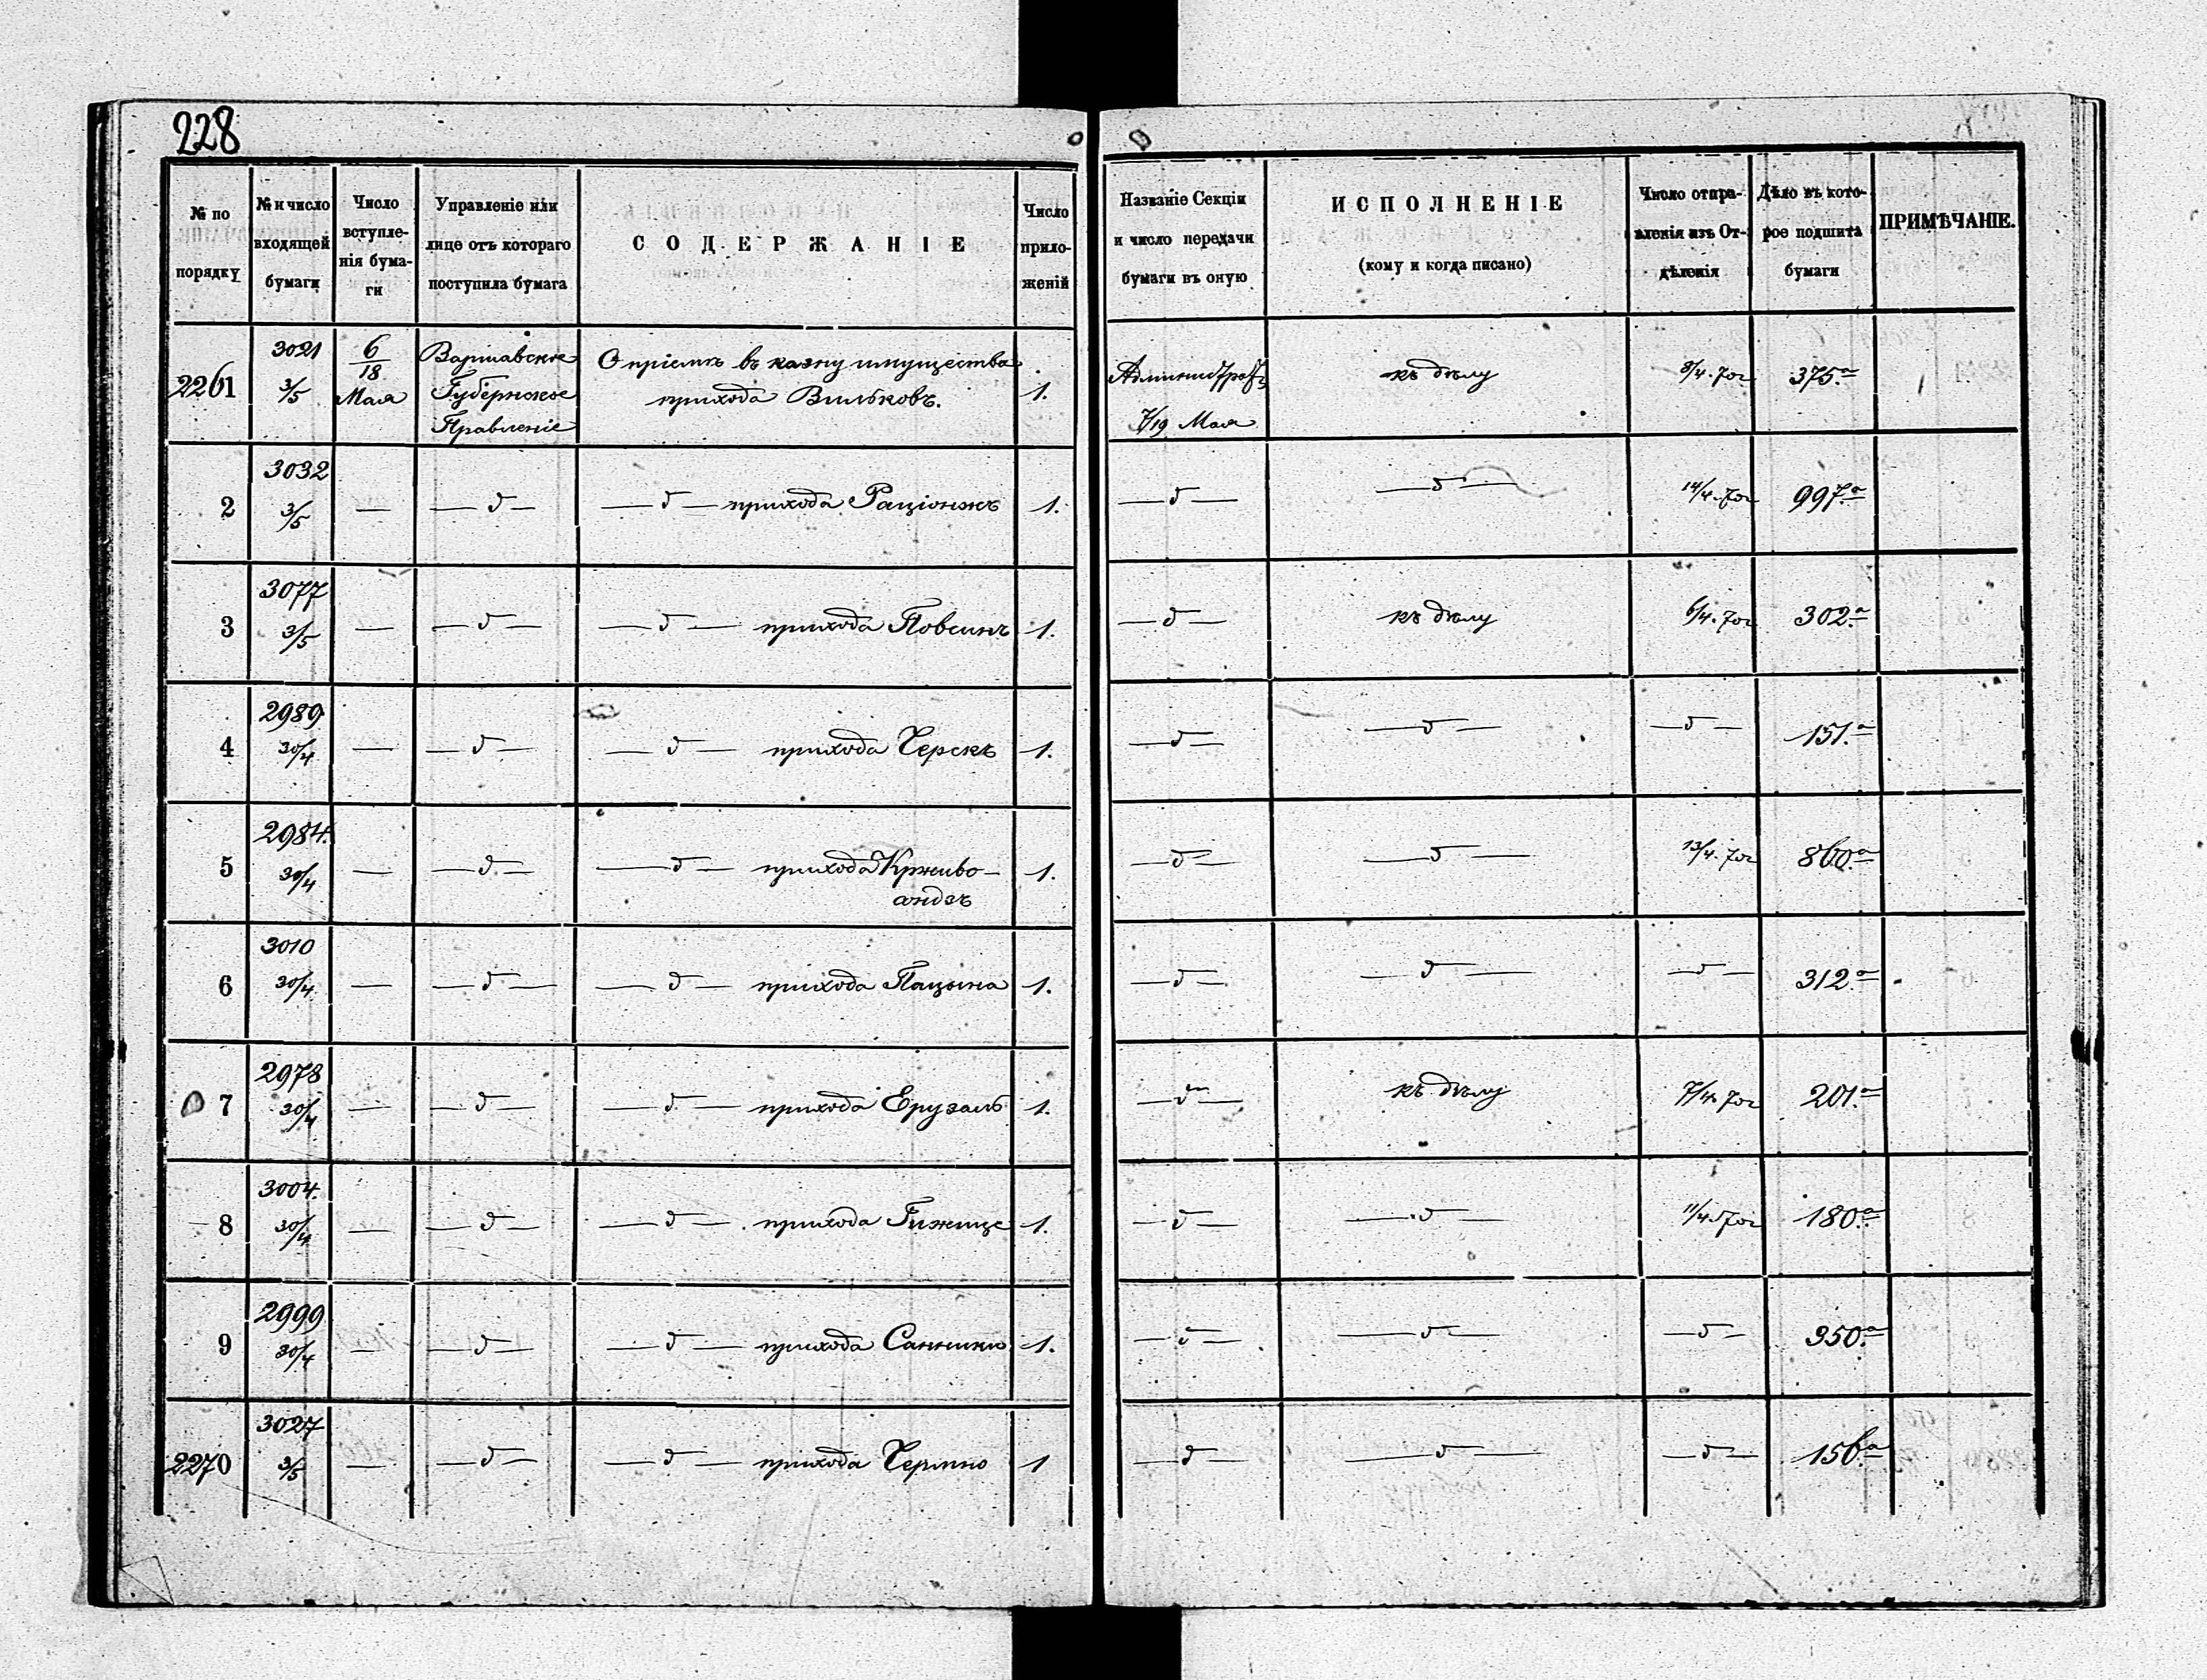 228
№ по порядку
№ и число входящей бумаги
Число вступле-нія бума-ги
Управленіе или лице отъ котораго поступила бумага
СОДЕРЖАНІЕ
Число прило-женій
Названіе Секціи и число передачи бумаги въ оную
ИСПОЛНЕНІЕ
(кому и когда писано)
Число отпра-вленія изъ От-дѣленія
Дѣло въ кото-рое подшита бумаги
ПРИМѢЧАНІЕ.
2261 3021 3/5 6/18 Мая Варшавское Губернское Правленіе О пріемѣ въ казну имущества прихода Вильковъ. 1. 7/19 Мая къ дѣлу 8/4. 70 г 375.а
2 3032 3/5 — — д — — д — прихода Раціонжъ 1. — д — — д — 14/4. 70 г 997.а
3 3077 3/5 — — д — — д — прихода Повсинъ 1. — д — къ дѣлу 6/4. 70 г 302.а
4 2989 30/4 — — д — — д — прихода Черскъ 1. — д — — д — — д — 151.а
5 2984. 30/4 — — д — — д — прихода Крживо-сондзъ 1. — д — — д — 13/4. 70 г 860.а
6 3010 30/4 — — д — — д — прихода Пацына 1. — д — — д — — д — 312.а
7 2978 30/4 — — д — — д — прихода Ерузаль 1. — д — къ дѣлу 7/4. 70 г 201.а
8 3004. 30/4 — — д — — д — прихода Гижице 1. — д — — д — 11/4. 70 г 180.а
9 2999 30/4 — — д — — д — прихода Санники 1. — д — — д — — д — 350.а
2270 3027 3/5 — — д — — д — прихода Чермно 1 — д — — д — — д — 156.а